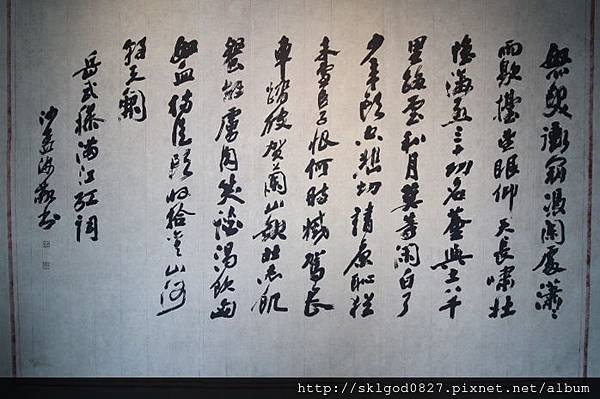 怒髮衝冠憑闌處瀟瀟
雨歇擡望眼仰天長嘯壯
懷激烈三十功名塵與土八千
里路雲和月莫等閑白了
少年頭空悲切靖康恥猶
未雪臣子恨何時滅駕長
車踏破賀蘭山缺壯志飢
餐胡虜肉笑談渴飲匈
奴血待從頭收拾舊山河
朝天闕
岳武穆滿江紅詞
沙孟海敬書
http://sklgod0827.pixnet.net/album